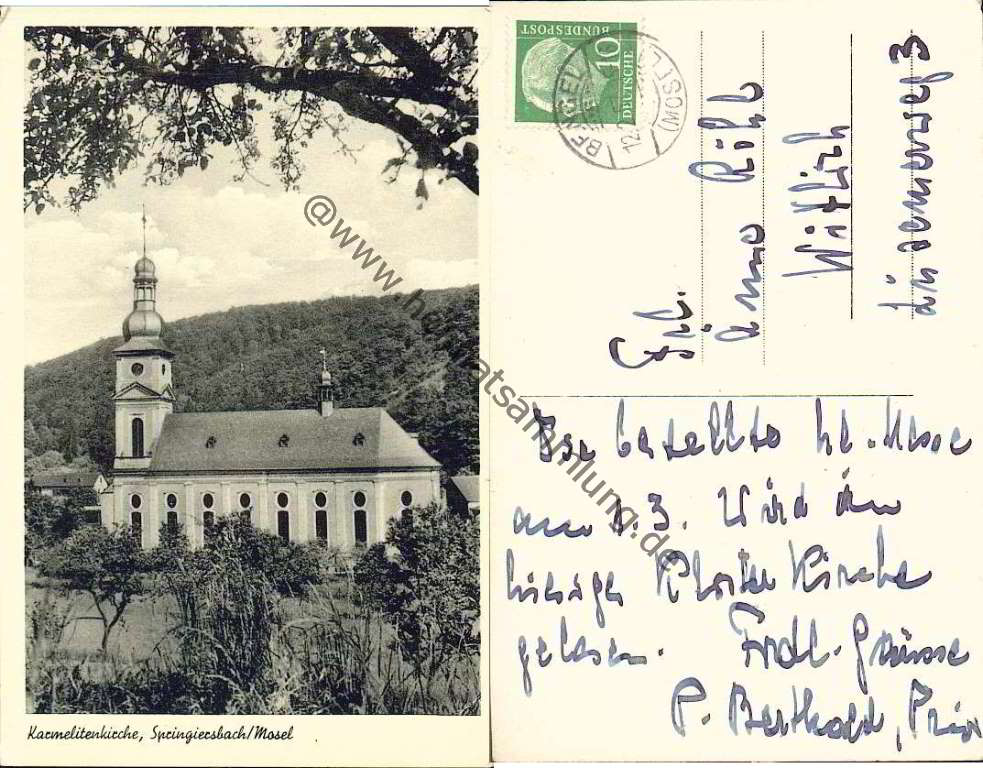 Karmelitenkirche, Springiersbach/Mosel
@www.heimatsammlung.de
DEUTSCHE
BUNDESPOST
10
BENGEL
(MOSEL)
12.2
Frl.
Anna
Wittlich
Die bestellte hl. Messe
am 1.3. wird in
hiesiger Klosterkirche
gelesen. Frdl. Grüsse
P. Berthold, Prior